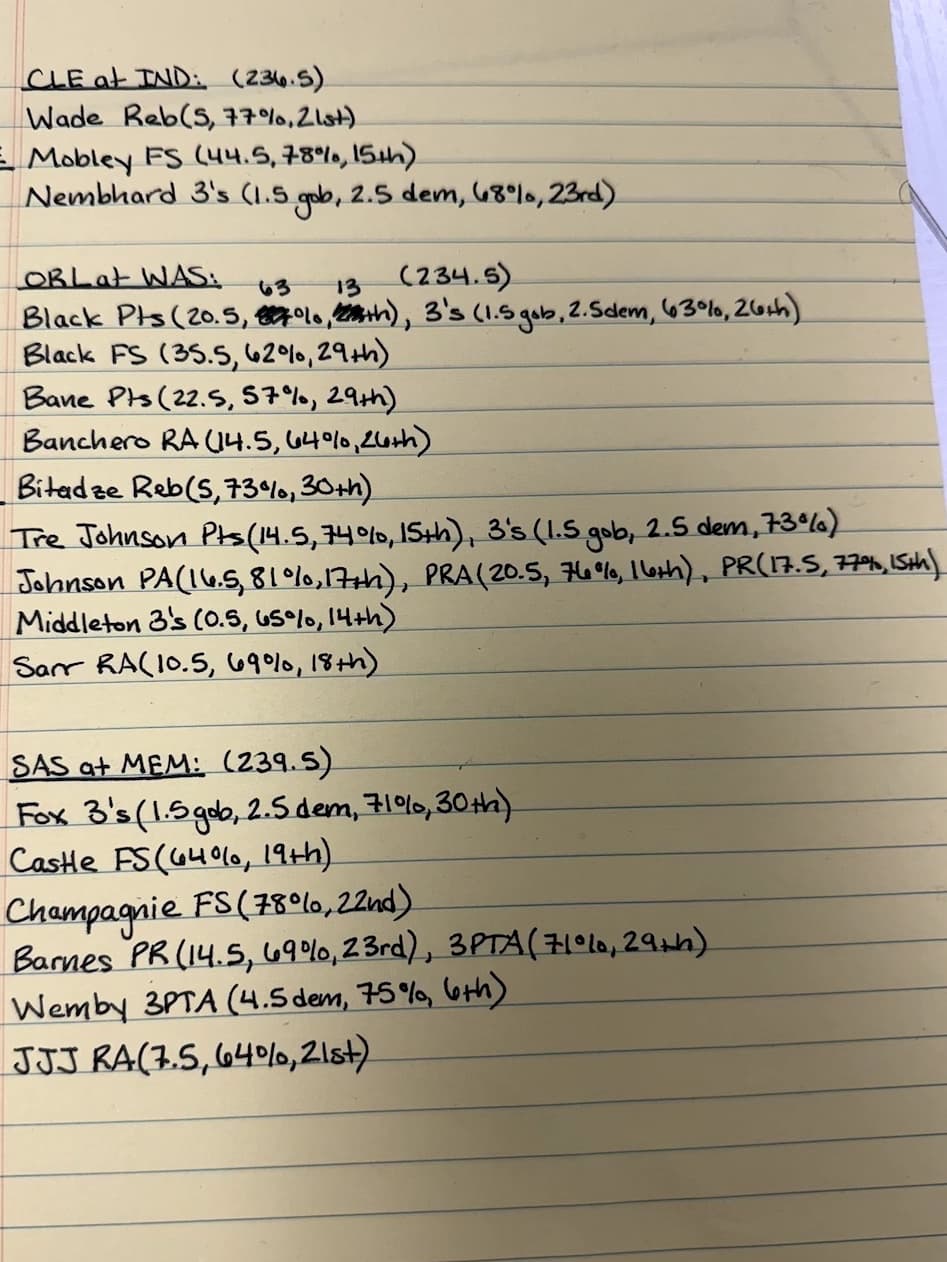 CLE at IND: (236.5)
Wade Reb(5, 77%, 21st)
Mobley FS (44.5, 78%, 15th)
Nembhard 3's (1.5 gob, 2.5 dem, 68%, 23rd)
ORL at WAS: (234.5)
63 13
Black Pts (20.5, %, th), 3's (1.5 gob, 2.5 dem, 63%, 26th)
Black FS (35.5, 62%, 29th)
Bane Pts (22.5, 57%, 29th)
Banchero RA (14.5, 64%, 26th)
Bitadze Reb(5, 73%, 30th)
Tre Johnson Pts (14.5, 74%, 15th), 3's (1.5 gob, 2.5 dem, 73%)
Johnson PA(16.5, 81%, 17th), PRA(20.5, 76%, 16th), PR(17.5, 77%, 15th)
Middleton 3's (0.5, 65%, 14th)
Sarr RA(10.5, 69%, 18th)
SAS at MEM: (239.5)
Fox 3's (1.5 gob, 2.5 dem, 71%, 30th)
Castle FS(64%, 19th)
Champagnie FS(78%, 22nd)
Barnes PR (14.5, 69%, 23rd), 3PTA(71%, 29th)
Wemby 3PTA (4.5 dem, 75%, 6th)
JJJ RA(7.5, 64%, 21st)